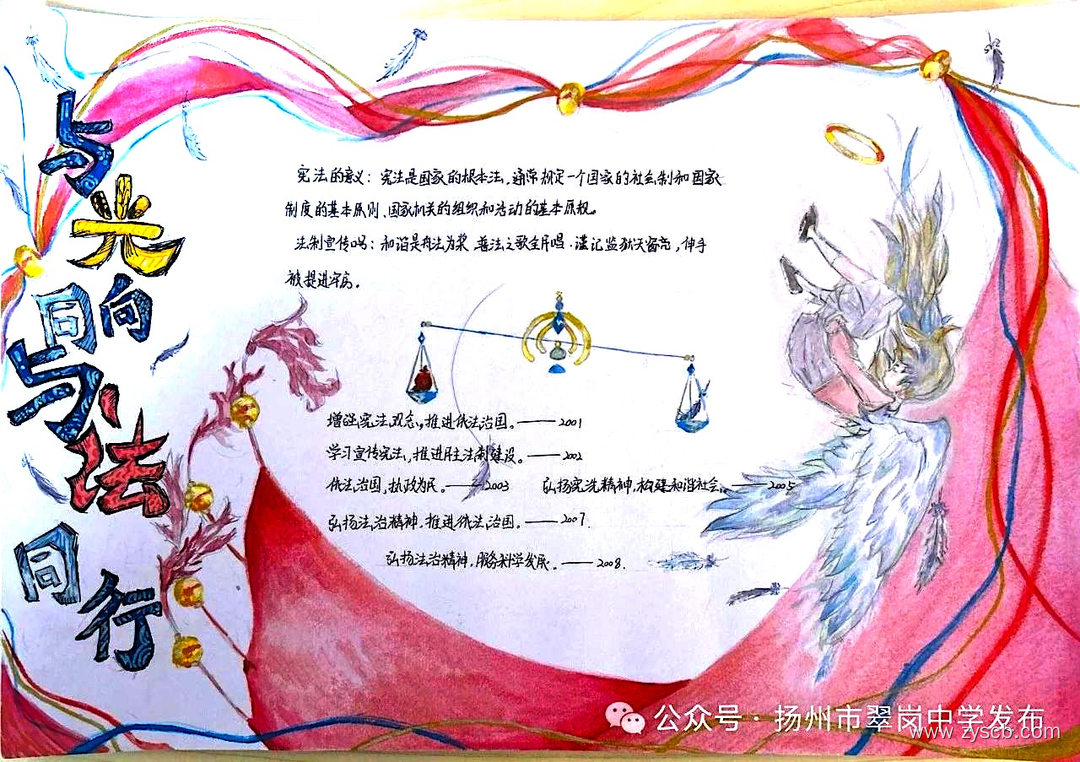 与光同向
与法同行
宪法的意义：宪法是国家的根本法，通常规定一个国家的社会制和国家
制度的基本原则、国家机关的组织和活动的基本原
法制宣传吗：和谐是舟法为桨 善法之歌全
被 进牢房。
增强宪法观念，推进依法治国。——2001
学习宣传宪法，推进民主法制建设。——2002
依法治国，执政为民。——2003 弘扬宪法精神，构建和谐社会。——2005
弘扬法治精神，推进依法治国。——2007.
弘扬法治精神，服务科学发展。——2008.
公众号·扬州市翠岗中学发布
www.zyscb.com